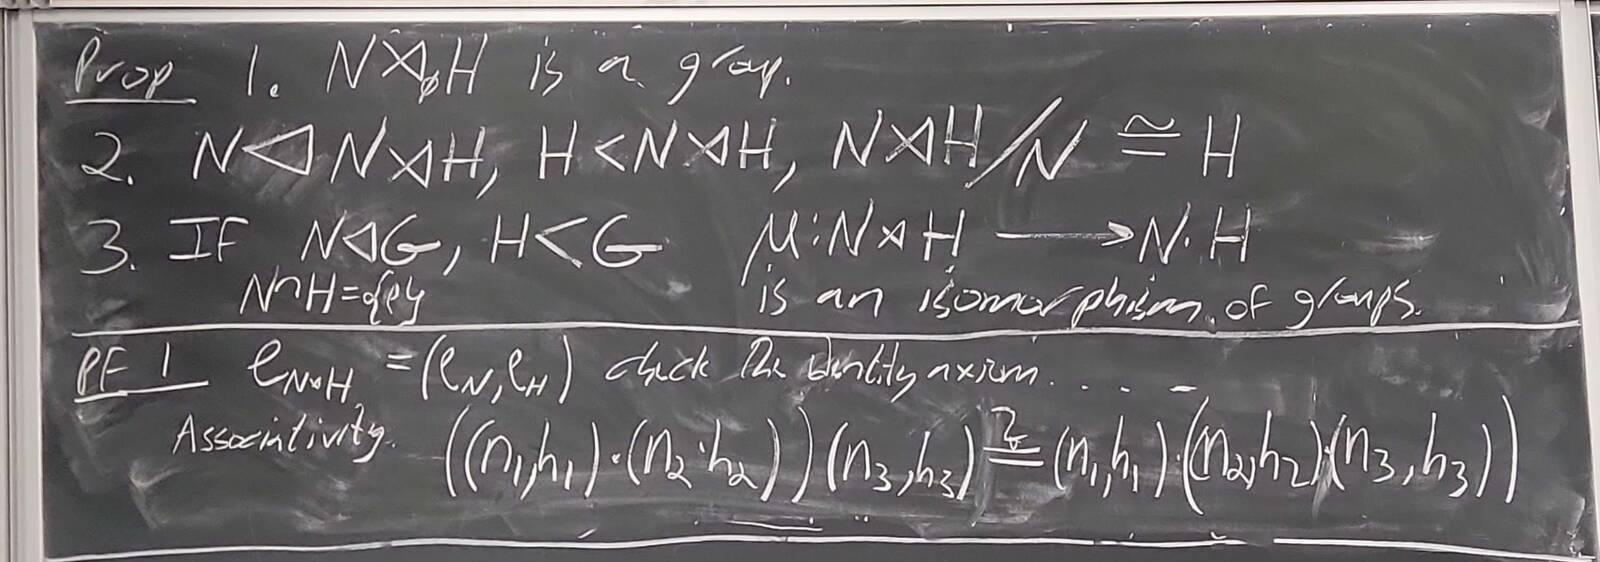 Prop 1. N⋊_φ H is a group.
2. N ◁ N⋊H, H < N⋊H, N⋊H/N ≅ H
3. If N◁G, H<G μ: N⋊H ⟶ N·H
N∩H={e} is an isomorphism of groups.
PF 1 e_{N⋊H} = (e_N, e_H) check the identity axiom. . . . -
Associativity. ((n₁,h₁)·(n₂·h₂))(n₃,h₃) ≟ (n₁,h₁)·((n₂,h₂)·(n₃,h₃))